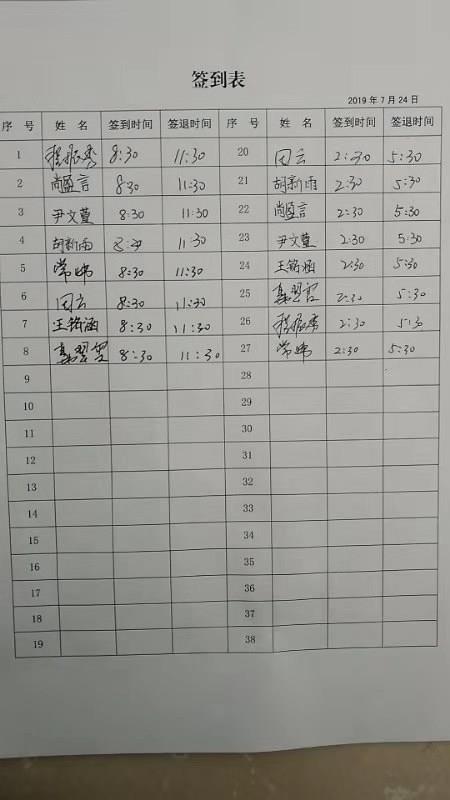 签到表
2019 年 7 月 24 日
序 号 姓 名 签到时间 签退时间 序 号 姓 名 签到时间 签退时间
1 8:30 11:30 20 田云 2:30 5:30
2 尚盈言 8:30 11:30 21 胡新雨 2:30 5:30
3 尹文萱 8:30 11:30 22 尚盈言 2:30 5:30
4 胡新雨 8:30 11:30 23 尹文萱 2:30 5:30
5 常晴 8:30 11:30 24 王铭涵 2:30 5:30
6 田云 8:30 11:30 25 2:30 5:30
7 王铭涵 8:30 11:30 26 2:30 5:30
8 8:30 11:30 27 常晴 2:30 5:30
9 28
10 29
11 30
12 31
13 32
14 33
15 34
16 35
17 36
18 37
19 38